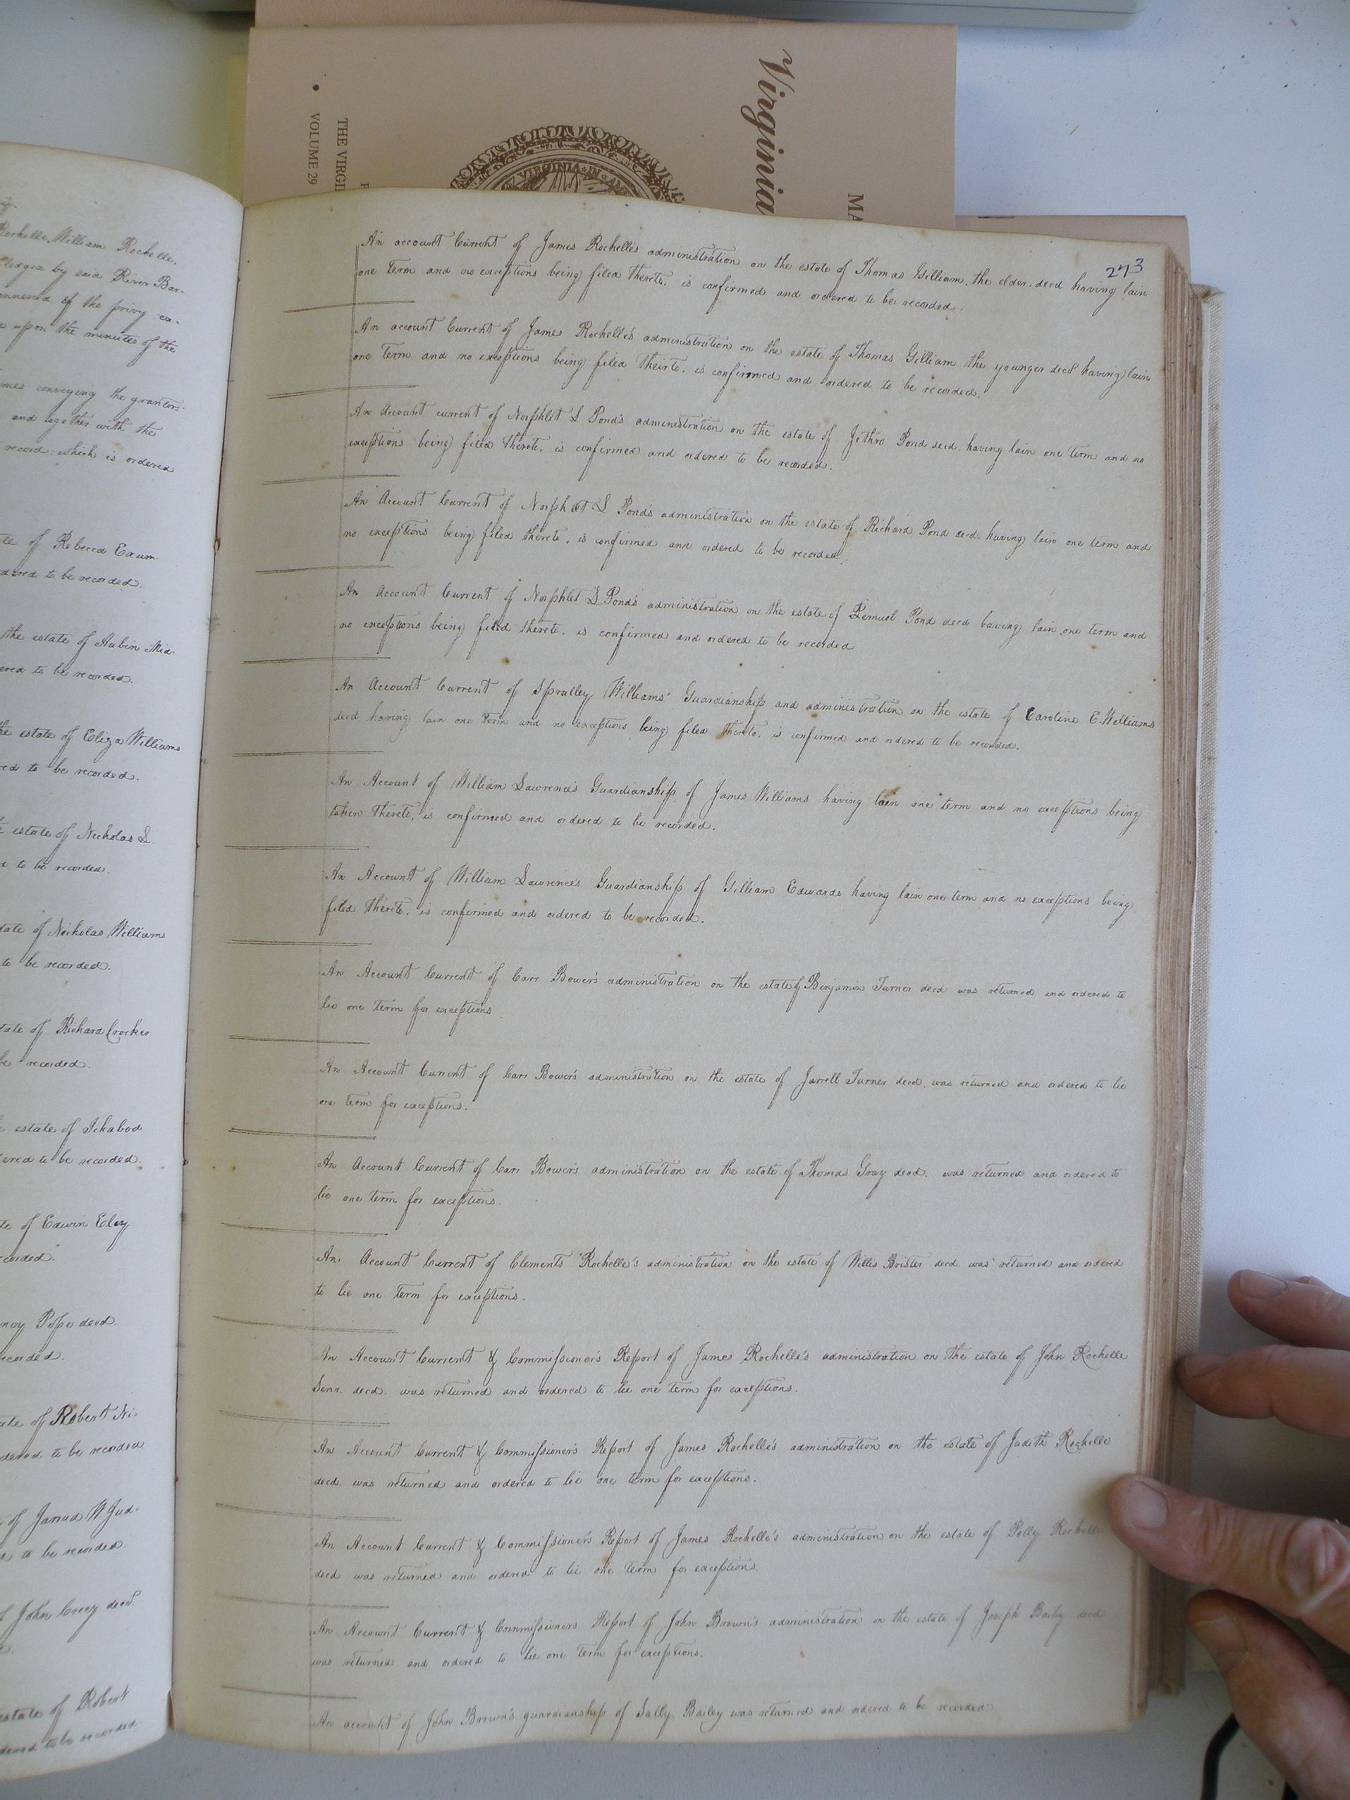 Virginia
MA
THE VIRGI
VOLUME 29
VIRGINIA IN AM
Rochelle, William Rochelle,
pledged by said River Bar-
annexed of the privy ex-
upon the minutes of the
ames conveying the grantors
and together with the
record which is ordered
te of Rebecca Exum
dered to be recorded.
the estate of Aubin Mid-
ered to be recorded.
the estate of Eliza Williams
red to be recorded.
estate of Nicholas L
d to be recorded.
tate of Nicholas Williams
to be recorded.
tate of Richard Crocker
be recorded.
estate of Ichabod
ered to be recorded.
te of Edwin Eley
ecorded.
ncy Pope decd.
recorded.
ate of Robert Ni-
dered to be recorded
of Jarrud W Jud-
d to be recorded.
of John Creey decd.
estate of Robert
dered to be recorded
273
An account Current of James Rochelle's administration on the estate of Thomas Gilliam, the elder, decd having lain
one Term and no exceptions being filed thereto, is confirmed and ordered to be recorded.
An account Current of James Rochelle's administration on the estate of Thomas Gilliam the younger decd having lain
one Term and no exceptions being filed thereto, is confirmed and ordered to be recorded.
An Account current of Norphlet S Pond's administration on the estate of Jethro Pond decd. having lain one term and no
exceptions being filed thereto, is confirmed and ordered to be recorded.
An Account Current of Norphlet S Pond's administration on the estate of Richard Pond decd. having lain one term and
no exceptions being filed thereto, is confirmed and ordered to be recorded.
An Account Current of Norphlet S Pond's administration on the estate of Lemuel Pond decd having lain one term and
no exceptions being filed thereto, is confirmed and ordered to be recorded
An Account Current of Spratley Williams' Guardianship and administration on the estate of Caroline E. Williams
decd having lain one Term and no exceptions being filed thereto, is confirmed and ordered to be recorded.
An Account of William Lawrence's Guardianship of James Williams having lain one term and no exceptions being
taken thereto, is confirmed and ordered to be recorded.
An Account of William Lawrence's Guardianship of Gilliam Edwards having lain one term and no exceptions being
filed thereto, is confirmed and ordered to be recorded.
An Account Current of Carr Bower's administration on the estate of Benjamin Turner decd was returned and ordered to
lie one term for exceptions
An Account Current of Carr Bower's administration on the estate of Jarrett Turner decd. was returned and ordered to lie
one term for exceptions.
An Account Current of Carr Bower's administration on the estate of Thomas Gray decd. was returned and ordered to
lie one term for exceptions.
An Account Current of Clements Rochelle's administration on the estate of Willis Boister decd was returned and ordered
to lie one term for exceptions.
An Account Current & Commissioner's Report of James Rochelle's administration on the estate of John Rochelle
Senr. decd. was returned and ordered to lie one term for exceptions.
An Account Current & Commissioner's Report of James Rochelle's administration on the estate of Judith Rochelle
decd. was returned and ordered to lie one term for exceptions.
An Account Current & Commissioner's Report of James Rochelle's administration on the estate of Polly Rochelle
decd was returned and ordered to lie one term for exceptions
An Account Current & Commissioners Report of John Brown's administration on the estate of Joseph Baily decd
was returned and ordered to lie one term for exceptions.
An account of John Brown's guardianship of Sally Bailey was returned and ordered to be recorded